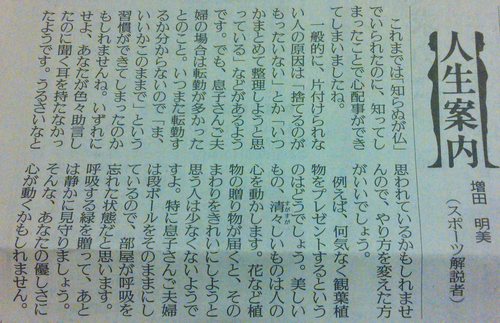 人生案内
増田 明美
（スポーツ解説者）
これまでは「知らぬが仏」
でいられたのに、知ってし
まったことで心配事ができ
てしまいましたね。
一般的に、片付けられな
い人の原因は「捨てるのが
もったいない」とか「いつ
かまとめて整理しようと思
っている」などがあるよう
です。でも、息子さんご夫
婦の場合は転勤が多かった
とのこと。いつまた転勤す
るか分からないので「ま、
いいかこのままで」という
習慣ができてしまったのか
もしれませんね。いずれに
せよ、あなたが色々助言し
たのに聞く耳を持たなかっ
たようです。うるさいなと
思われているかもしれませ
んので、やり方を変えた方
がいいでしょう。
例えば、何気なく観葉植
物をプレゼントするという
のはどうでしょう。美しい
もの、清々しいものは人の
すがすが
心を動かします。花など植
物の贈り物が届くと、その
まわりをきれいにしようと
思う人は少なくないようで
すよ。特に息子さんご夫婦
は段ボールをそのままにし
ているので、部屋が呼吸を
忘れた状態だと思います。
呼吸する緑を贈って、あと
は静かに見守りましょう。
そんな、あなたの優しさに
心が動くかもしれません。